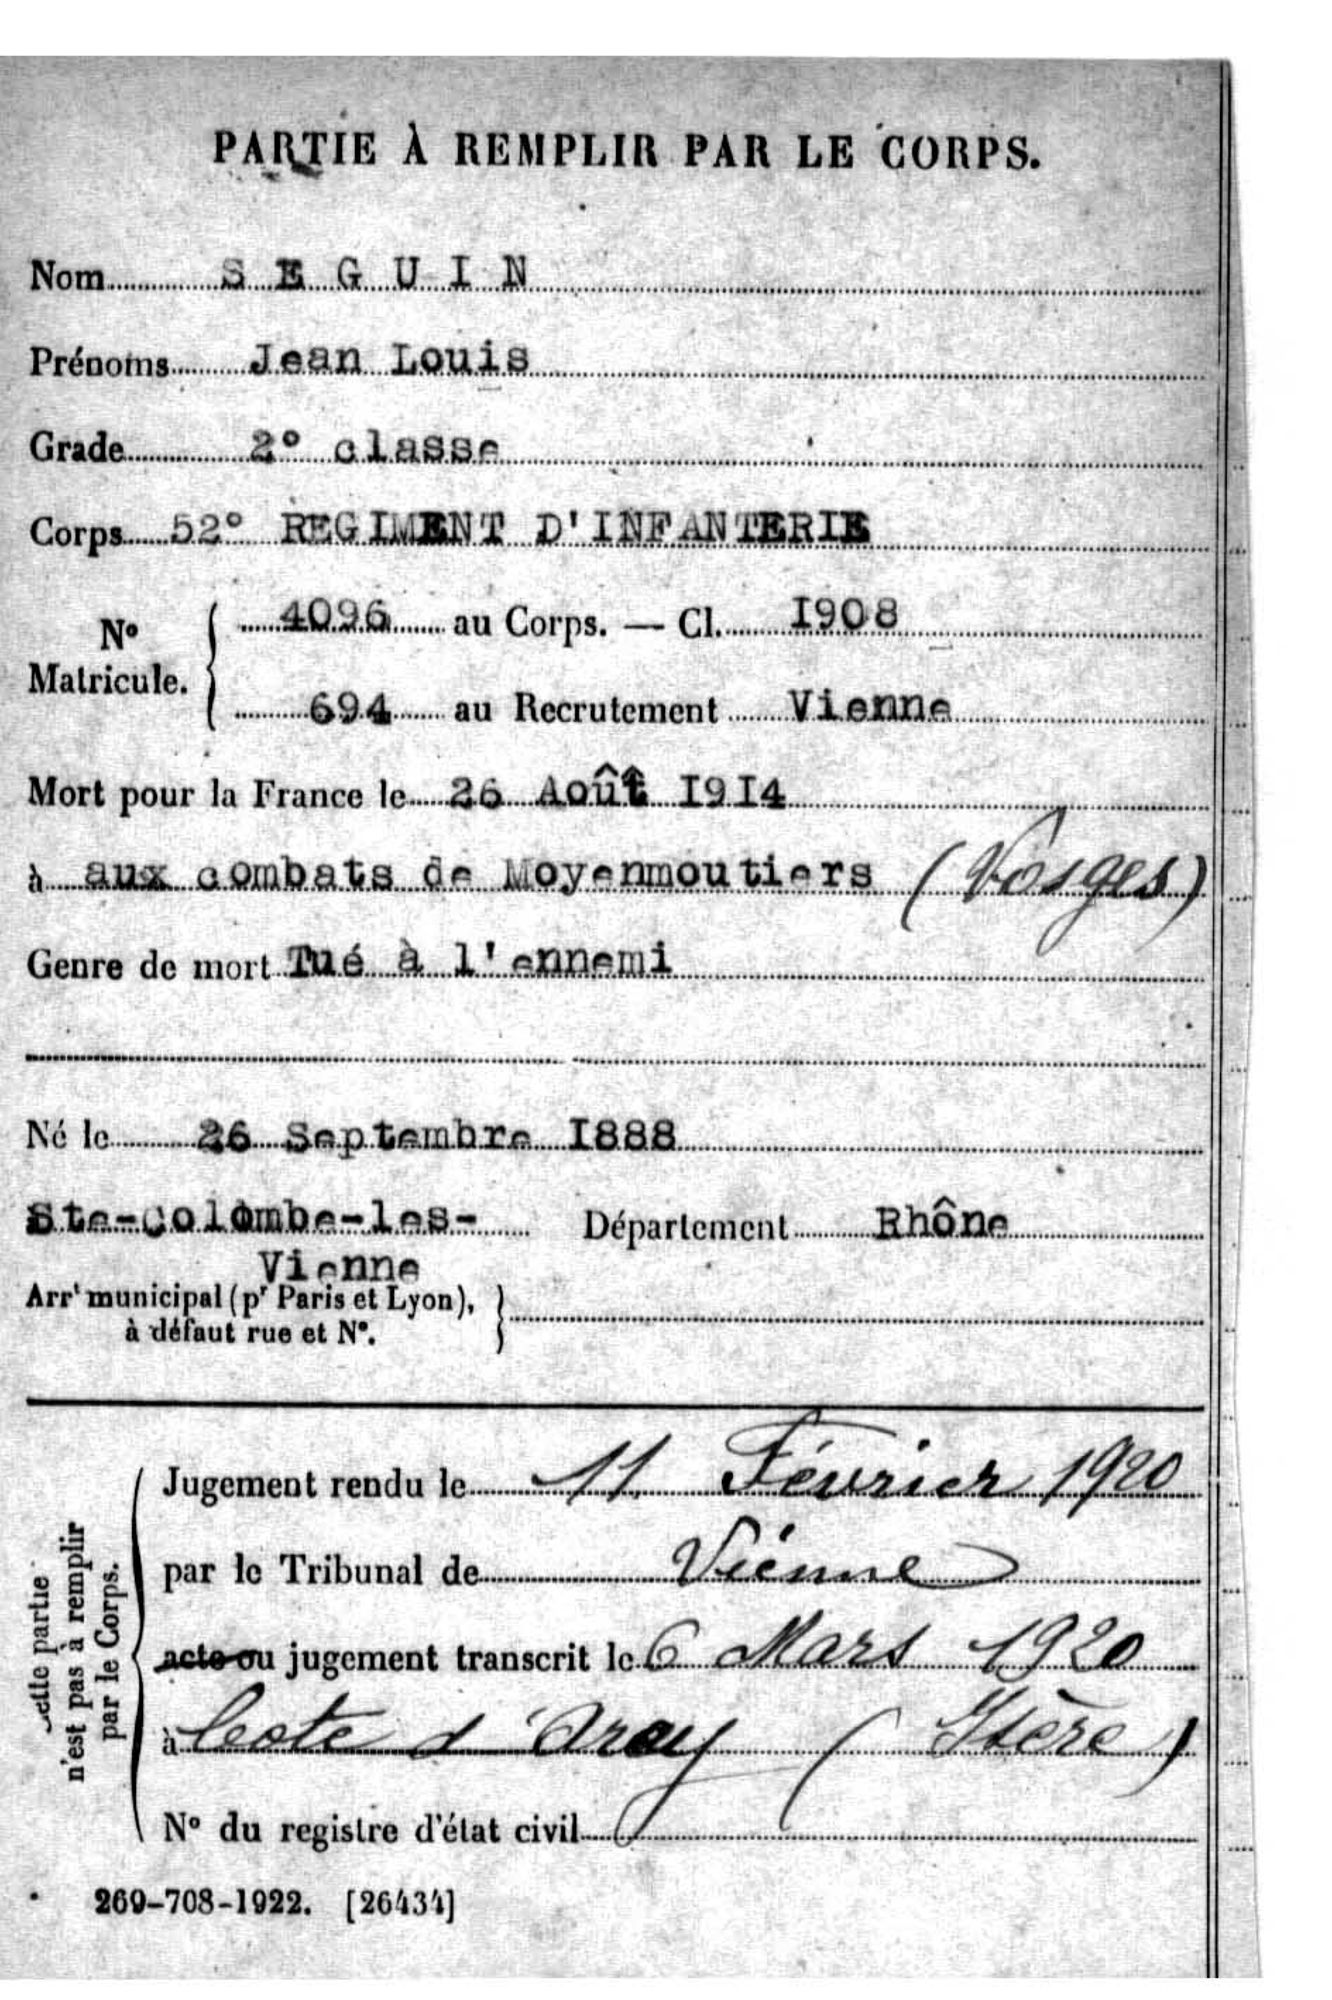 PARTIE À REMPLIR PAR LE CORPS.
Nom SEGUIN
Prénoms Jean Louis
Grade 2° classe
Corps 52° REGIMENT D'INFANTERIE
N° Matricule. { 4096 au Corps. — Cl. I908
694 au Recrutement Vienne
Mort pour la France le 26 Août I9I4
à aux combats de Moyenmoutiers (Vosges)
Genre de mort Tué à l'ennemi
Né le 26 Septembre I888
Ste-Colombe-les-Vienne Département Rhône
Arrt municipal (pr Paris et Lyon), à défaut rue et N°. }
Cette partie n'est pas à remplir par le Corps.
Jugement rendu le 11 Février 1920
par le Tribunal de Vienne
acte ou jugement transcrit le 6 Mars 1920
à Cote d'Arey (Isère)
N° du registre d'état civil
269-708-1922. [26434]